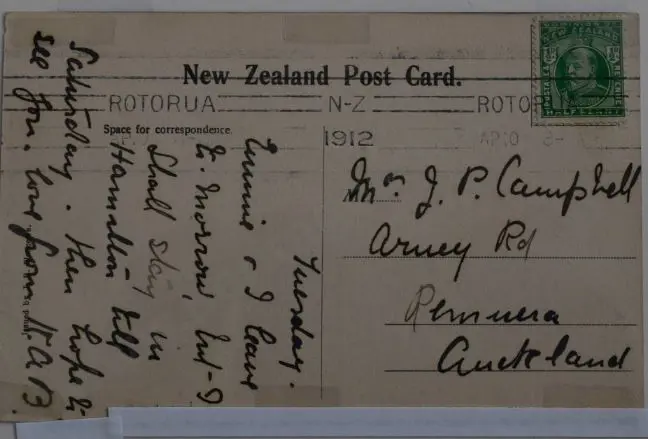 NEW ZEALAND
HALFPENNY
New Zealand Post Card.
ROTORUA N-Z ROTORUA
1912 AP10 3-
Space for correspondence.
Mrs J. P. Campbell
Arney Rd
Remuera
Auckland
Tuesday.
& I leave
to-morrow, but I
shall stay in
Hamilton till
Saturday. Then hope to
see you. Love from